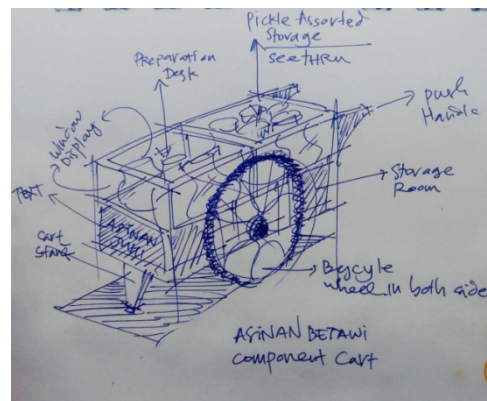 Pickle Assorted
Storage
SeeTHRU
Preparation
Desk
push
Handle
Window
Display
Storage
Room
TEXT
ASINAN
Cart
Stand
Bycycle
wheel in both side
ASINAN BETAWI
Component Cart